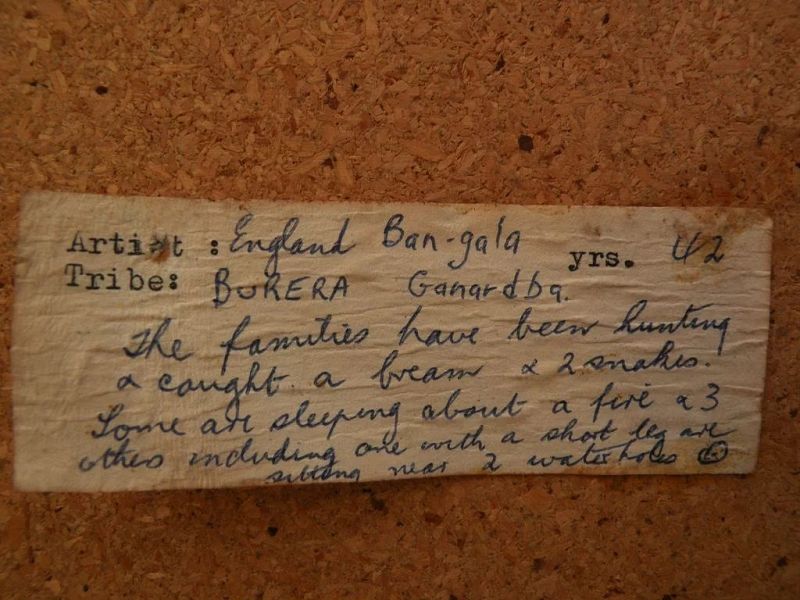 Artist : England Ban-gala yrs. 42
Tribe: BURERA Ganardba.
The families have been hunting
& caught a bream & 2 snakes.
Some are sleeping about a fire & 3
others including one with a short leg are
sitting near 2 waterholes